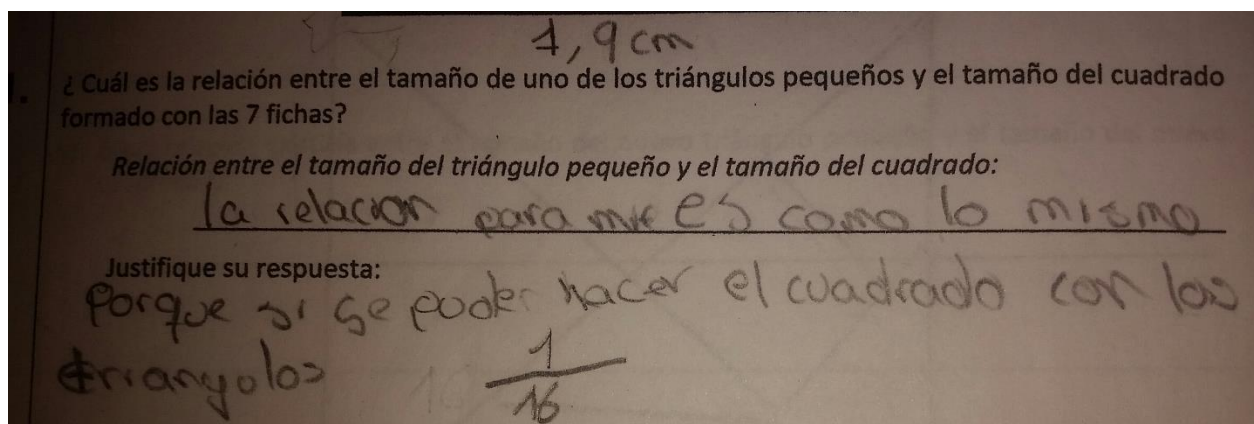 1,9 cm
¿ Cuál es la relación entre el tamaño de uno de los triángulos pequeños y el tamaño del cuadrado
formado con las 7 fichas?
Relación entre el tamaño del triángulo pequeño y el tamaño del cuadrado:
la relacion para mi es como lo mismo
Justifique su respuesta:
Porque si se poder hacer el cuadrado con los
triangolos 1/16